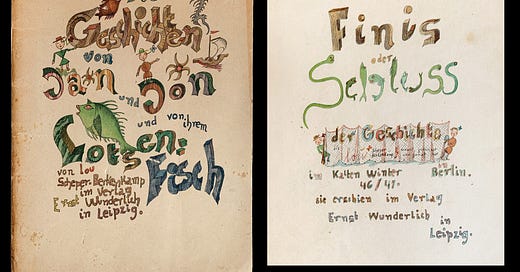 Die
Geschichten
von
Jan und Jon
und von ihrem
Lotsen:
Fisch
von Lou
Scheper-Berkenkamp
im Verlag
Ernst Wunderlich
in Leipzig.
Finis
oder
Schluss
der Geschichte
im Kalten Winter in Berlin.
46/47.
sie erschien im Verlag
Ernst Wunderlich
in
Leipzig.